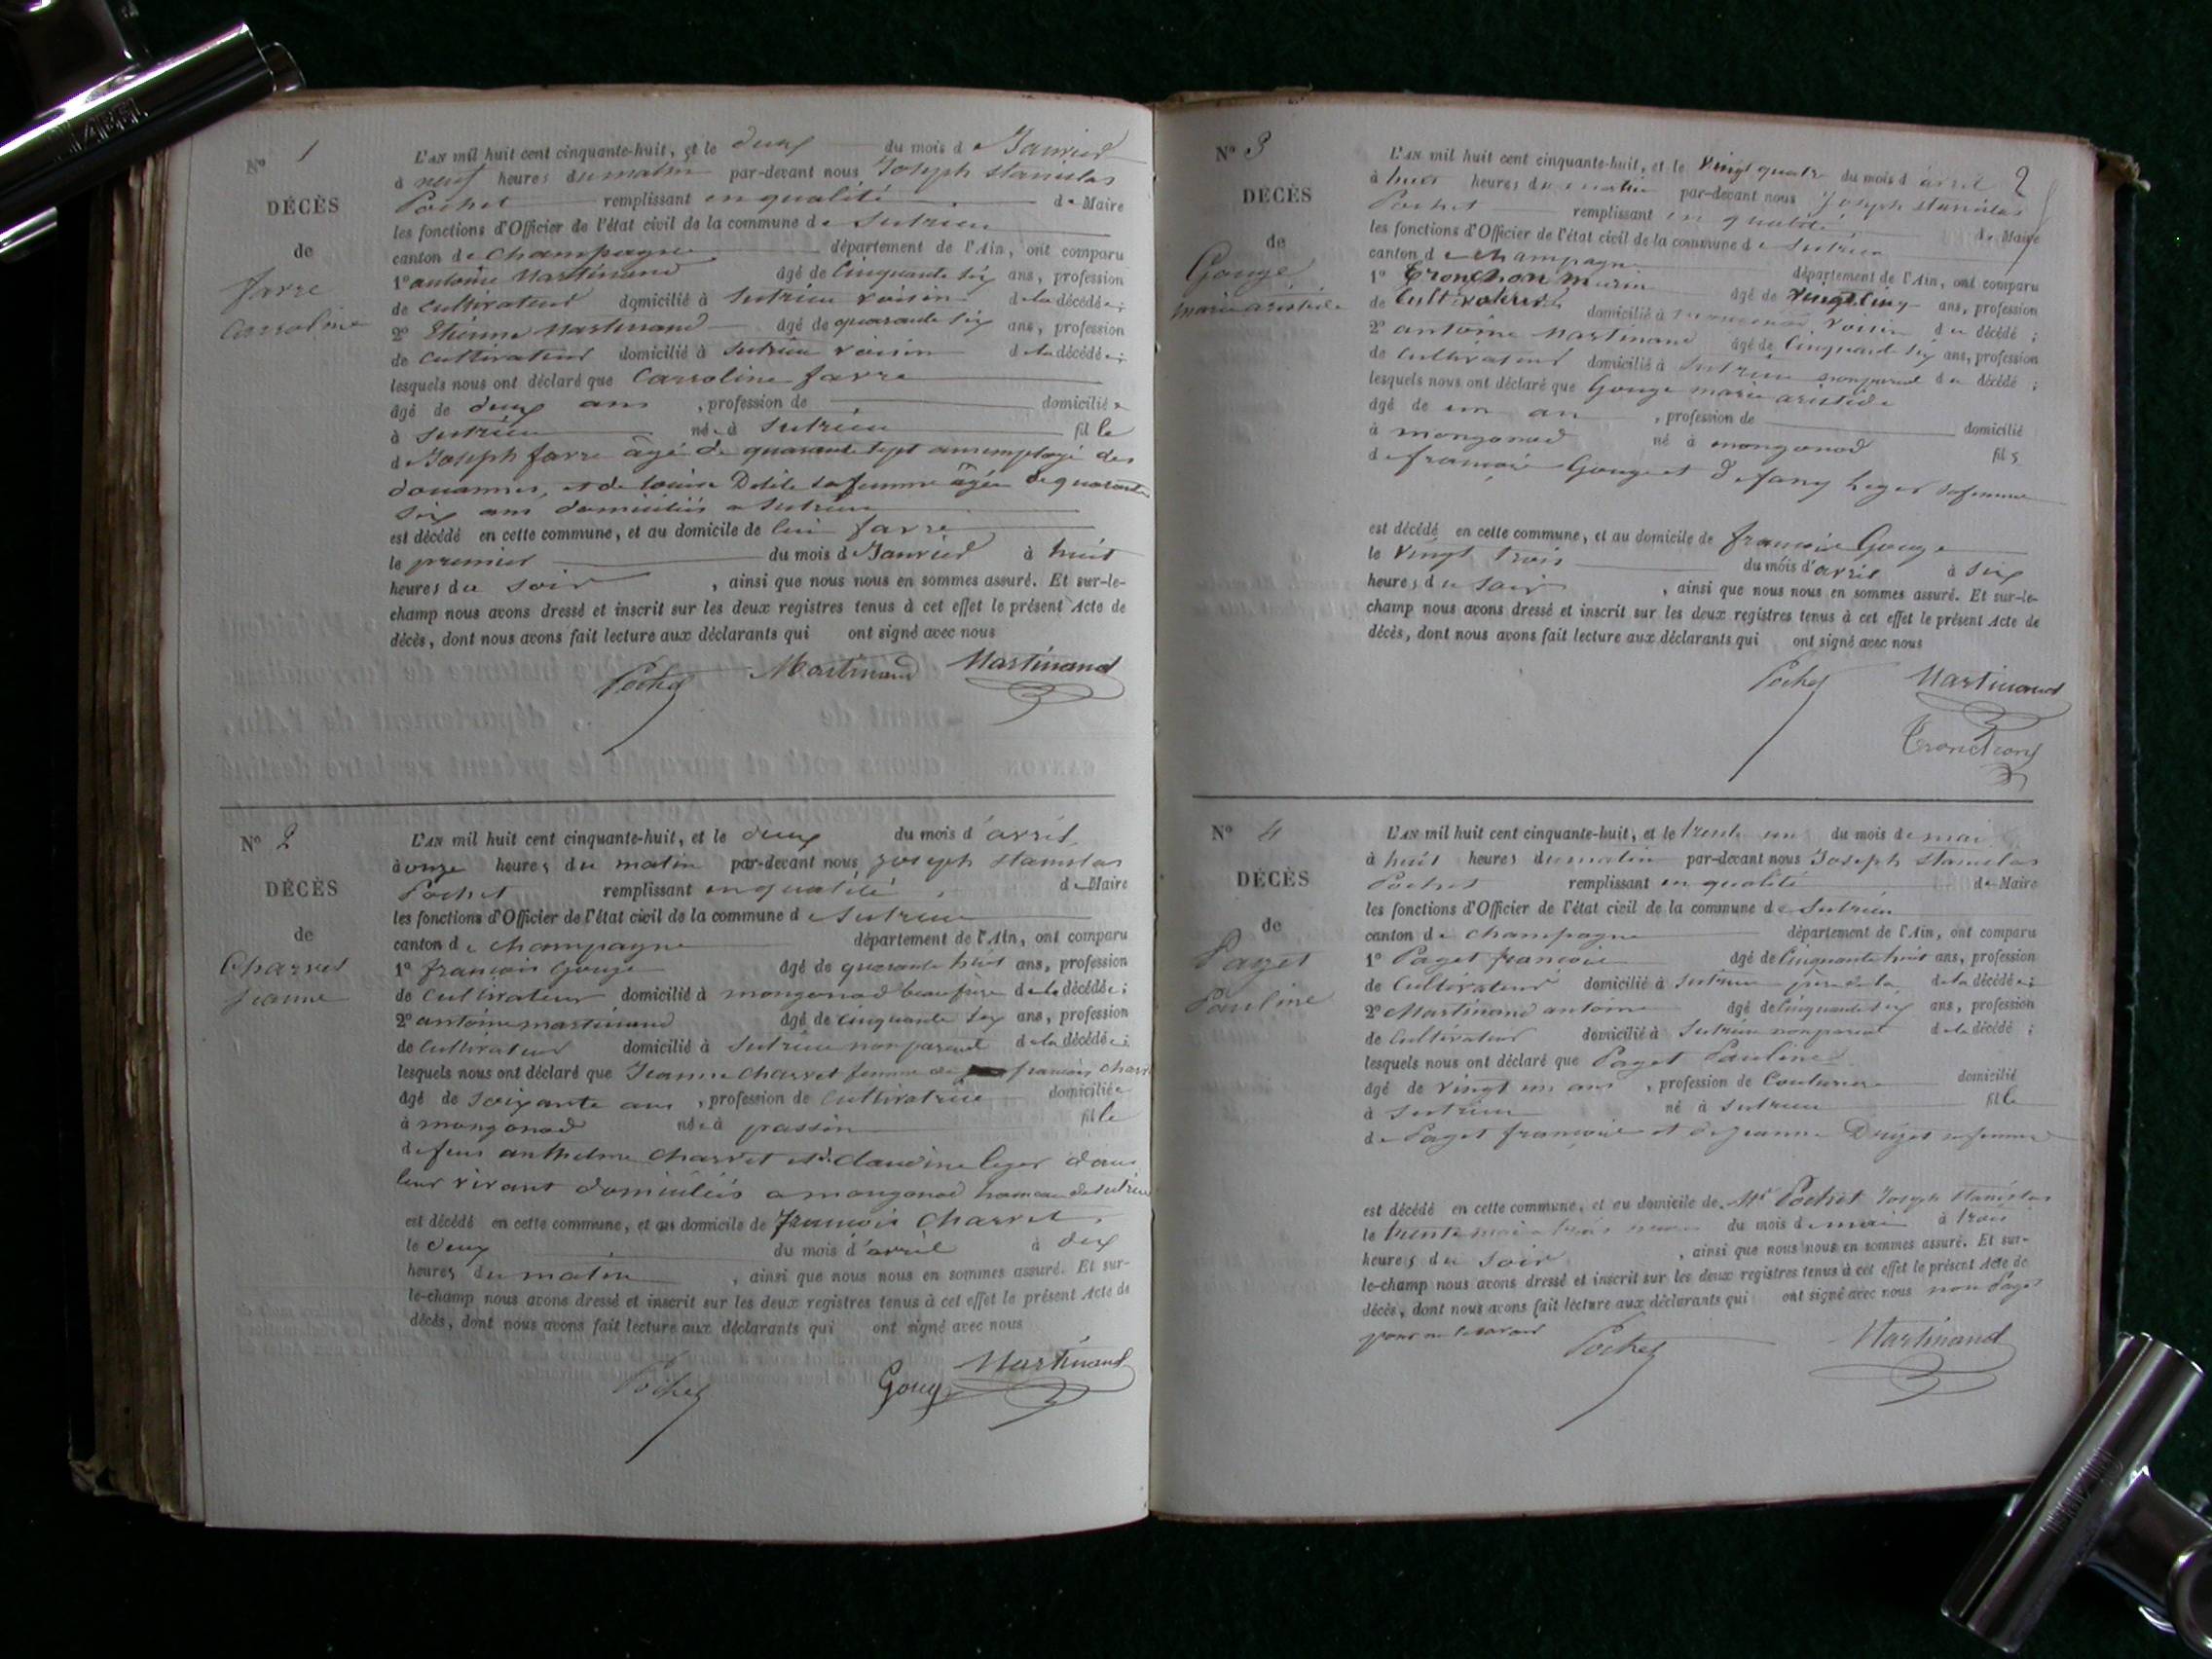 Nº 1
DÉCÈS
de
farre
Carroline
L'AN mil huit cent cinquante-huit, et le deux du mois de Janvier
à neuf heures du matin par-devant nous Joseph Stanislas
Pochet remplissant en qualité de Maire
les fonctions d'Officier de l'état civil de la commune de Sutrieu
canton de Champagne département de l'Ain, ont comparu
1º antoine Martinand âgé de Cinquante six ans, profession
de Cultivateur domicilié à Sutrieu voisin de la décédée;
2º Etienne Martinand âgé de quarante six ans, profession
de Cultivateur domicilié à Sutrieu voisin de la décédée;
lesquels nous ont déclaré que Carroline farre
âgé de deux ans , profession de domiciliée
à Sutrieu née à Sutrieu fille
de Joseph farre âgé de quarante sept ans employé des
douannes, et de louise Delile sa femme âgée de quarante
six ans domiciliés a Sutrieu
est décédé en cette commune, et au domicile de lui farre
le premier du mois de Janvier à huit
heures du soir , ainsi que nous nous en sommes assuré. Et sur-le-
champ nous avons dressé et inscrit sur les deux registres tenus à cet effet le présent Acte de
décès, dont nous avons fait lecture aux déclarants qui ont signé avec nous
Pochet Martinand Martinand
Nº 2
DÉCÈS
de
Charvet
Jeanne
L'AN mil huit cent cinquante-huit, et le deux du mois d'avril
à onze heures du matin par-devant nous Joseph Stanislas
Pochet remplissant en qualité de Maire
les fonctions d'Officier de l'état civil de la commune de Sutrieu
canton de Champagne département de l'Ain, ont comparu
1º françois Gouge âgé de quarante huit ans, profession
de Cultivateur domicilié à mongonod beau frère de la décédée;
2º antoine martinand âgé de cinquante six ans, profession
de Cultivateur domicilié à Sutrieu non parent de la décédée;
lesquels nous ont déclaré que Jeanne Charvet femme de françois
âgé de soixante ans , profession de Cultivatrice domiciliée
à mongonod née à passin fille
de feus anthelme Charvet et Claudine leger
leur vivant domiciliés a mongonod hameau de Sutrieu
est décédé en cette commune, et au domicile de françois Charvet
le deux du mois d'avril à deux
heures du matin , ainsi que nous nous en sommes assuré. Et sur-
le-champ nous avons dressé et inscrit sur les deux registres tenus à cet effet le présent Acte de
décès, dont nous avons fait lecture aux déclarants qui ont signé avec nous
Pochet Gouge Martinand
2
Nº 3
DÉCÈS
de
Gouge
marie aristide
L'AN mil huit cent cinquante-huit, et le vingt quatre du mois d'avril
à huit heures du matin par-devant nous Joseph Stanislas
Pochet remplissant en qualité de Maire
les fonctions d'Officier de l'état civil de la commune de Sutrieu
canton de Champagne département de l'Ain, ont comparu
1º Tronchon âgé de vingt cinq ans, profession
de Cultivateur domicilié à voisin du décédé;
2º antoine Martinand âgé de Cinquante six ans, profession
de Cultivateur domicilié à Sutrieu non parent du décédé;
lesquels nous ont déclaré que Gouge marie aristide
âgé de un an , profession de domicilié
à mongonod né à mongonod fils
de françois Gouge et de fany leger sa femme
est décédé en cette commune, et au domicile de françois Gouge
le vingt trois du mois d'avril à six
heures du soir , ainsi que nous nous en sommes assuré. Et sur-le-
champ nous avons dressé et inscrit sur les deux registres tenus à cet effet le présent Acte de
décès, dont nous avons fait lecture aux déclarants qui ont signé avec nous
Pochet Martinand
Tronchon
Nº 4
DÉCÈS
de
Paget
Pauline
L'AN mil huit cent cinquante-huit, et le trente un du mois de mai
à huit heures du matin par-devant nous Joseph Stanislas
Pochet remplissant en qualité de Maire
les fonctions d'Officier de l'état civil de la commune de Sutrieu
canton de Champagne département de l'Ain, ont comparu
1º Paget françois âgé de Cinquante huit ans, profession
de Cultivateur domicilié à Sutrieu père de la de la décédée;
2º Martinand antoine âgé de Cinquante six ans, profession
de Cultivateur domicilié à Sutrieu non parent de la décédé;
lesquels nous ont déclaré que Paget Pauline
âgé de vingt un ans , profession de Couturière domicilié
à Sutrieu né à Sutrieu fille
de Paget françois et de Jeanne sa femme
est décédé en cette commune, et au domicile de Mr Pochet Joseph Stanislas
le trente du mois de mai à trois
heures du soir , ainsi que nous nous en sommes assuré. Et sur-
le-champ nous avons dressé et inscrit sur les deux registres tenus à cet effet le présent Acte de
décès, dont nous avons fait lecture aux déclarants qui ont signé avec nous non Paget
pour ne le savoir Pochet Martinand